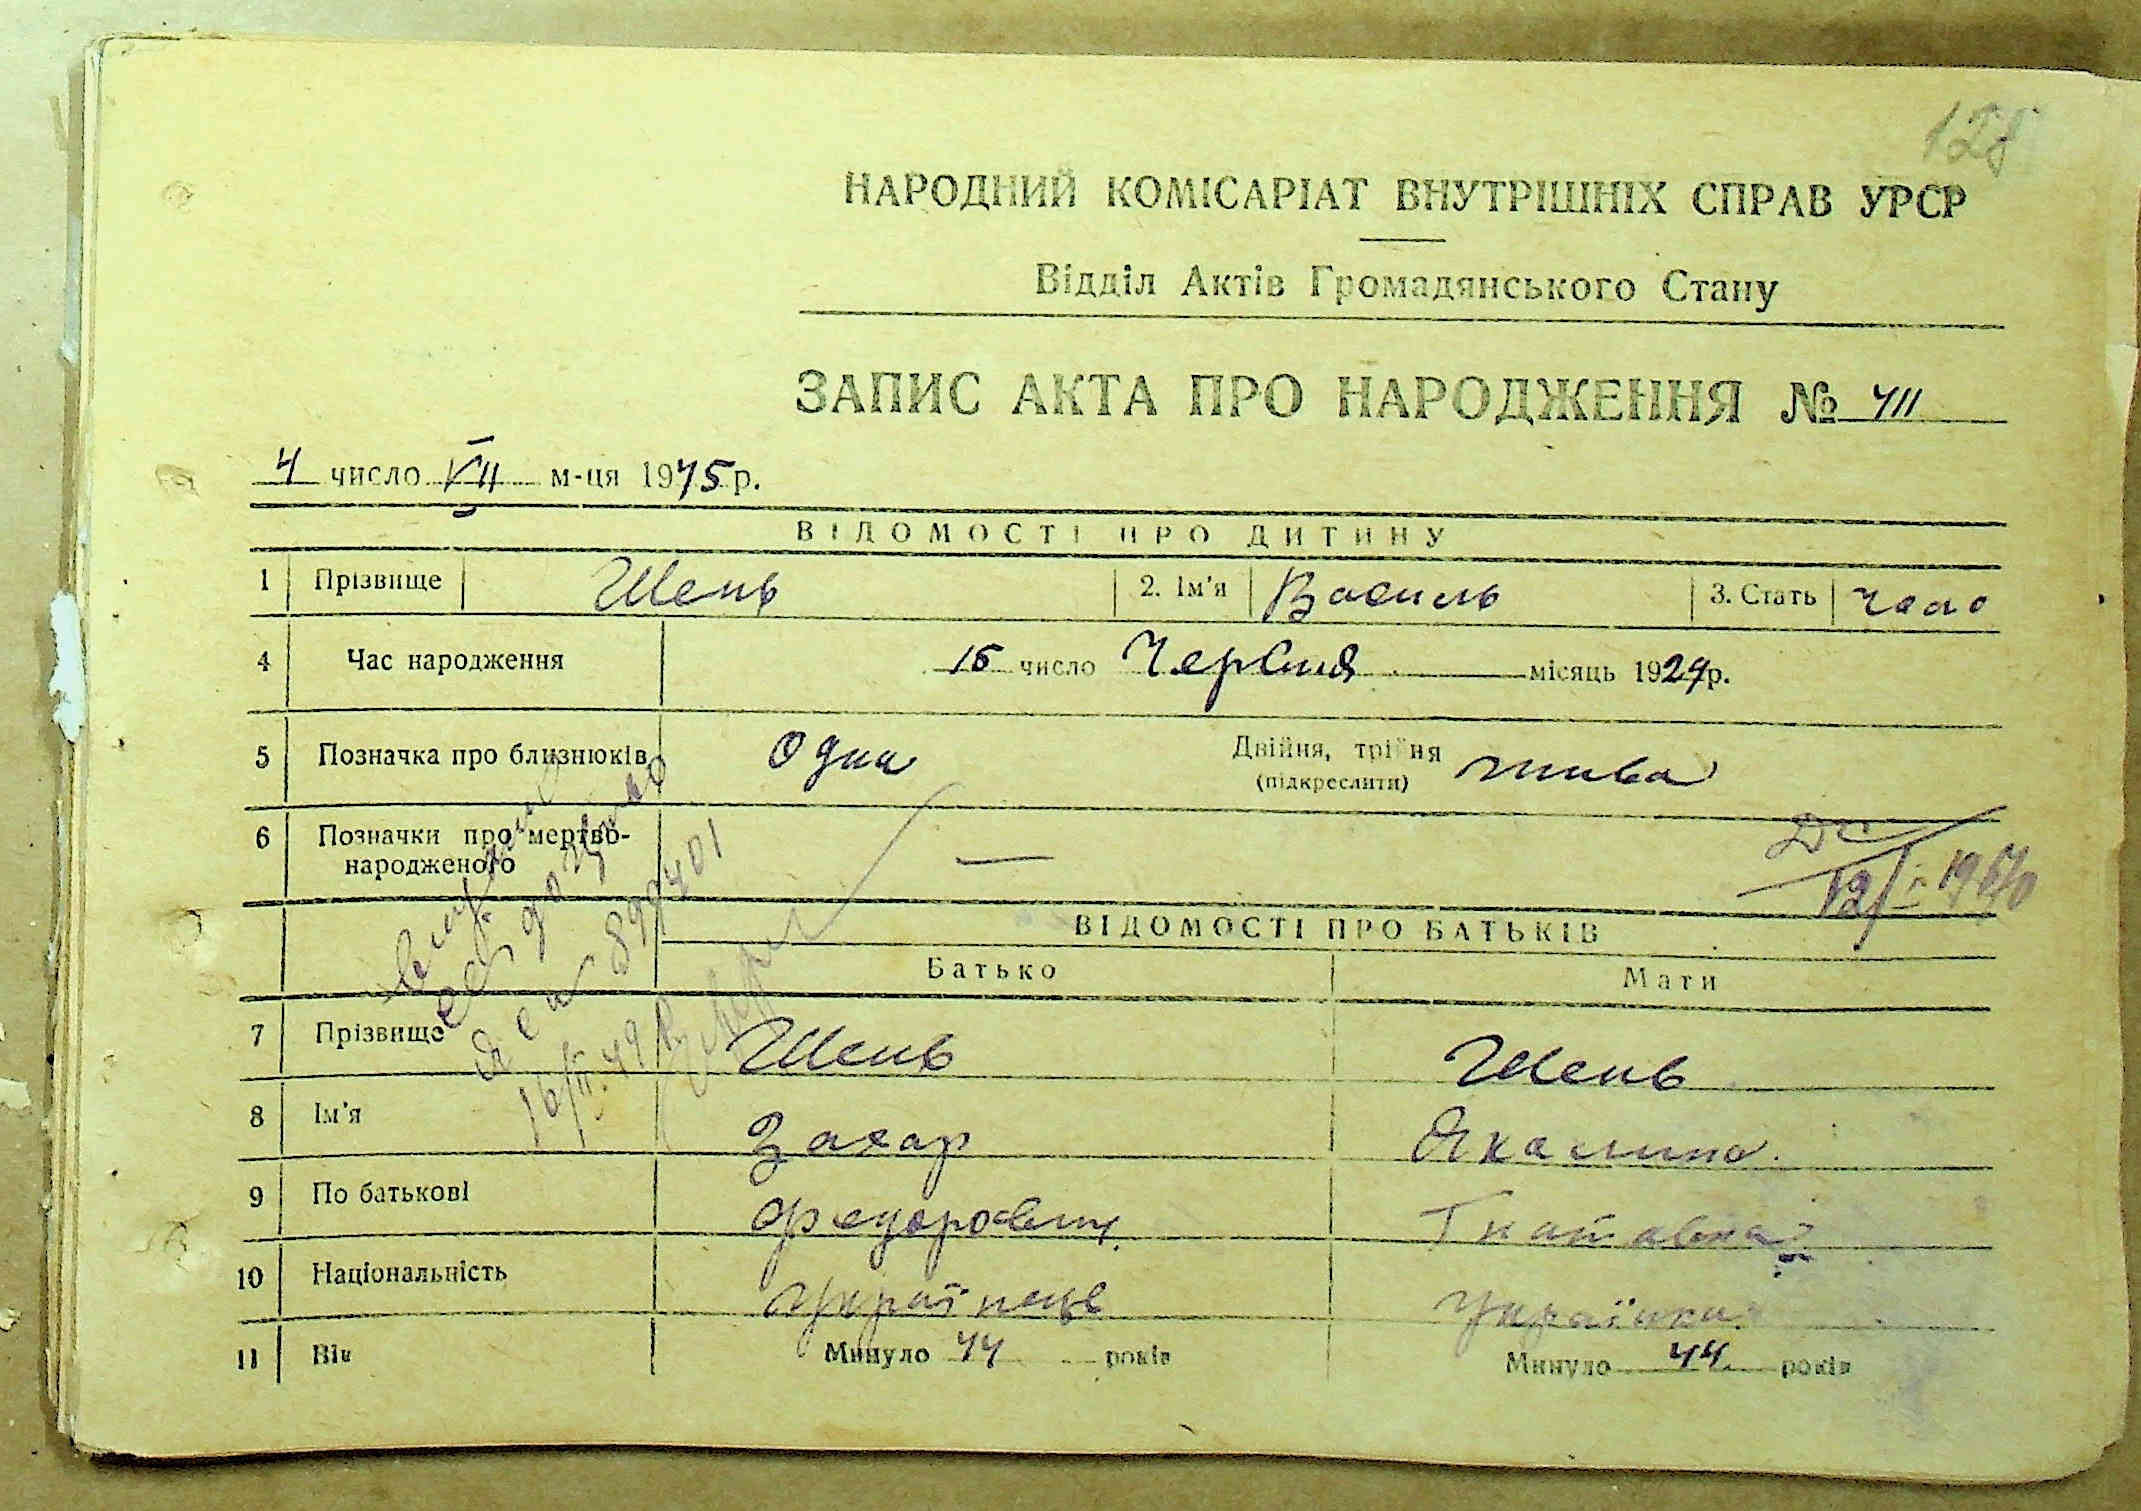 128
НАРОДНИЙ КОМІСАРІАТ ВНУТРІШНІХ СПРАВ УРСР
Відділ Актів Громадянського Стану
ЗАПИС АКТА ПРО НАРОДЖЕННЯ № 411
4 число VII м-ця 1945 р.
ВІДОМОСТІ ПРО ДИТИНУ
1 Прізвище Шень 2. Ім'я Василь 3. Стать чоло
4 Час народження 15 число Червня місяць 1924р.
5 Позначка про близнюків Одна Двійня, трійня жива
(підкреслити)
6 Позначки про мертво-
народженого —
12/I 1960
ВІДОМОСТІ ПРО БАТЬКІВ
Батько Мати
7 Прізвище Шень Шень
8 Ім'я Захар Якилина
9 По батькові Федорович Гнатовна
10 Національність Українець Українка
11 Вік Минуло 44 років Минуло 44 років